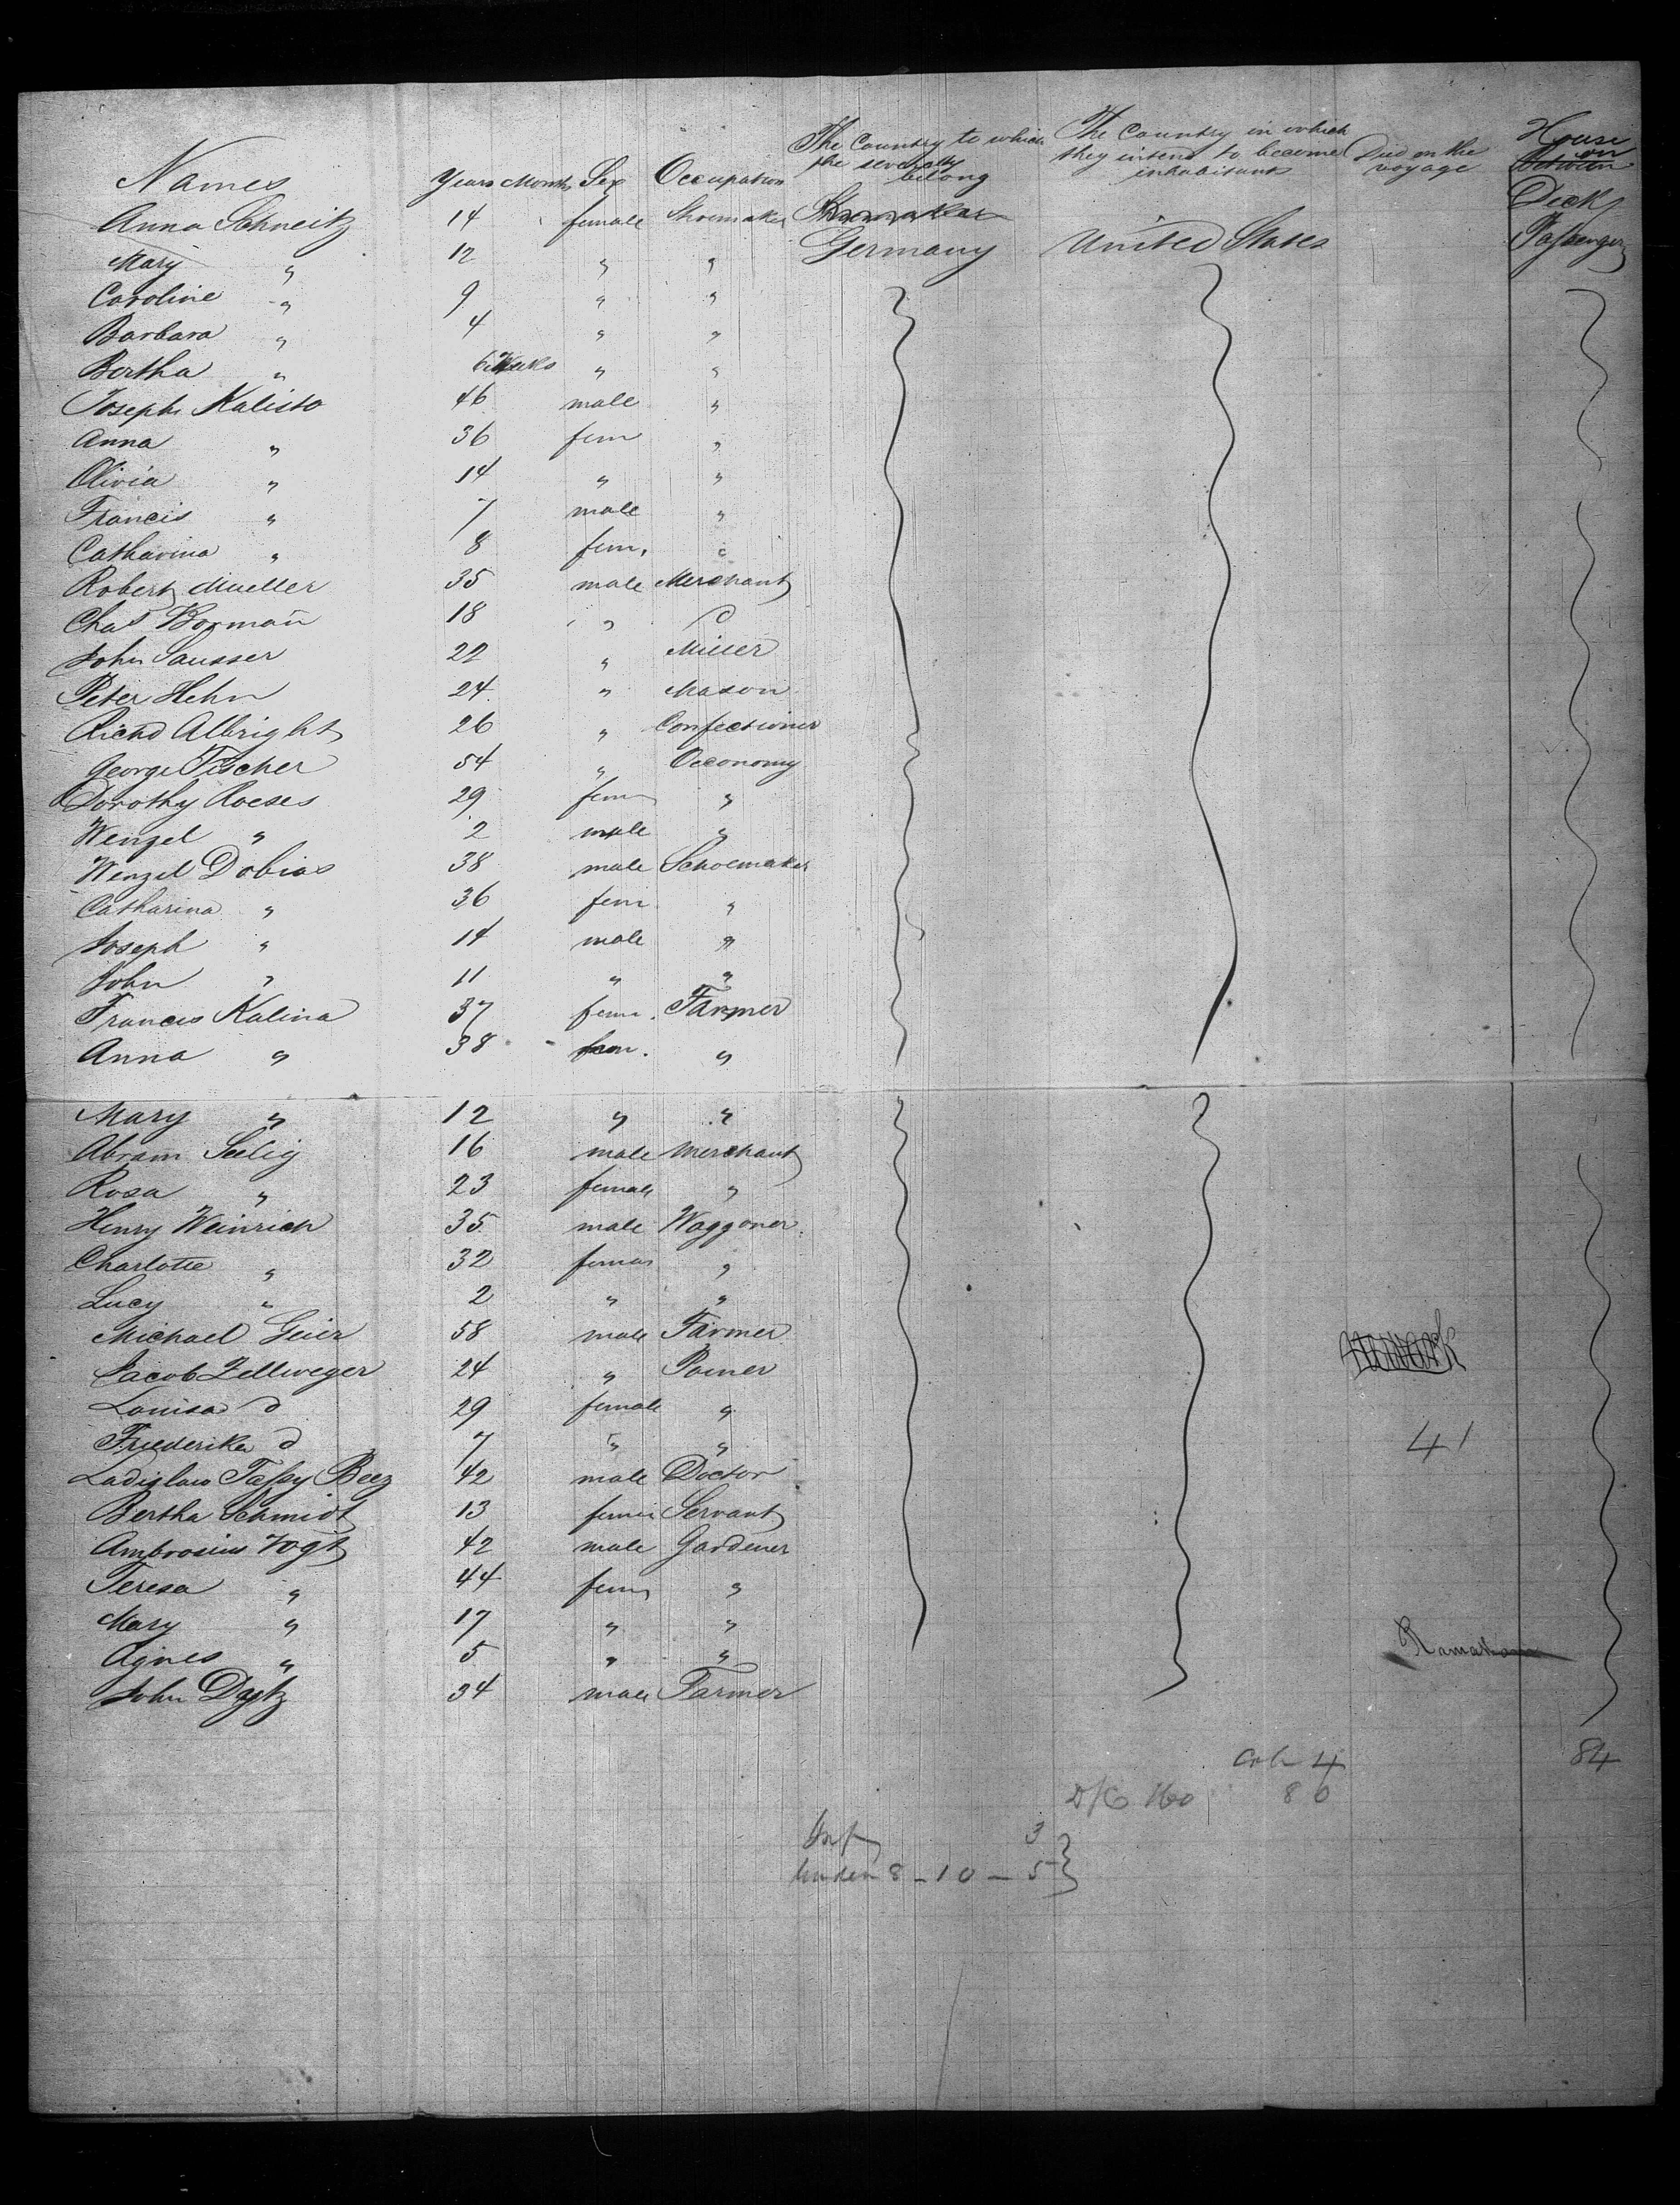 Names Years Months Sex Occupation The Country to which the severally belong The Country in which they intend to become inhabitants Died on the voyage House on Deck Passengers
Anna Schneitz 14 female Shoemaker
Mary " 12 " " Germany United States
Caroline " 9 " "
Barbara " 4 " "
Bertha " 6 Weeks " "
Joseph Kalisto 46 male "
Anna " 36 fem "
Olivia " 14 " "
Francis " 7 male "
Catharina " 8 fem. "
Robert Mueller 35 male Merchant
Chas Borman 18 "
John Sausser 22 " Miller
Peter Hehn 24 " Mason
Richd Albright 26 " Confectioner
George Fischer 54 " Oeconomy
Dorothy Roeses 29 fem "
Wenzel " 2 male "
Wenzel Dobias 38 male Schoemaker
Catharina " 36 fem "
Joseph " 14 male "
John " 11 " "
Frances Kalina 37 fem. Farmer
Anna " 38 fem. "
Mary " 12 " "
Abram Seelig 16 male Merchant
Rosa " 23 female "
Henry Weinrich 35 male Waggoner
Charlotte " 32 "
Lucy " 2 " "
Michael Geier 58 male Farmer
Jacob Zellweger 24 "
Louisa d 29 female "
Friederika d 7 " " 41
Ladislaus 42 male Doctor
Bertha Schmidt 13 Servant
Ambrosius Vogt 42 male Gardener
Teresa " 44 fem "
Mary " 17 " "
Agnes " 5 " "
John 34 male Farmer
4 84
160 80
Inf 3
Under 8 - 10 - 5